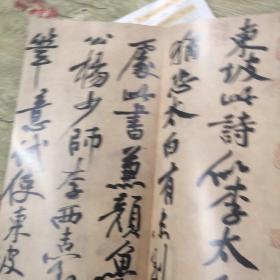 東坡此詩似李太
猶恐太白有未到
處此書兼顏魯
公楊少師李西臺
筆意試使東坡